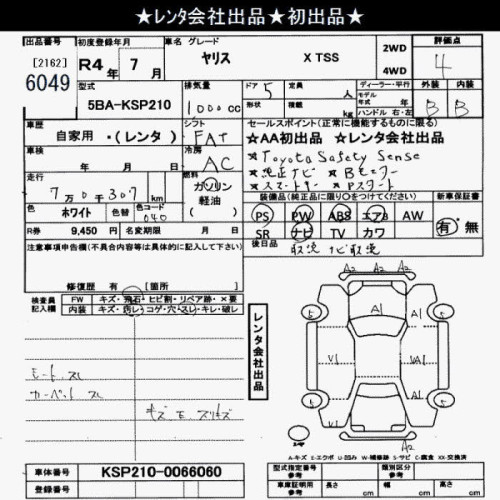 ★レンタ会社出品★初出品★
出品番号 初度登録年月 車名 グレード 評価点
[2162] 6049
R4年 7月 ヤリス X TSS 2WD 4WD 4
型式 排気量 ドア 定員 ディーラー・平行 外装 内装
5BA-KSP210 1000cc 5 人 モデル年式 年 B B
形状 積載 kg ハンドル 右・左
車歴 シフト セールスポイント(正常に機能するものに限る)
自家用・(レンタ) FAT ★AA初出品 ★レンタ会社出品
車検 年 月 日 冷房 AC ★Toyota Safety Sense
★純正ナビ ★Bモニター
★スマートキー ★Pスタート
走行 7万0千307km 燃料 ガソリン 軽油
装備品(純正品に限り○をつけてください) 新車保証書
色 ホワイト 色替 色コード 040
PS PW ABS エアB AW 有・無
R券 9,450円 名変期限 年 月 日
SR ナビ TV カワ
注意事項申告欄(不具合内容等は具体的に記入して下さい)
後日品 取説 ナビ取説
修復歴 有 [箇所 ]
検査員記入欄 FW キズ・飛石・ヒビ割・リペア跡・×要
内装 キズ・汚レ・コゲ・穴・スレ・キレ・破レ
レンタ会社出品
シートスレ
カーペットスレ
キズ E スリキズ
A2 A2
A1
V1 V1 VA1
A1
A2 A2
A-キズ E-エクボ U-凹み W-補修跡 S-サビ C-腐食 XX-交換済
車体番号 KSP210-0066060
登録番号
型式指定番号 類別区分
車庫証明用参考 長さ cm 幅 cm 高さ cm